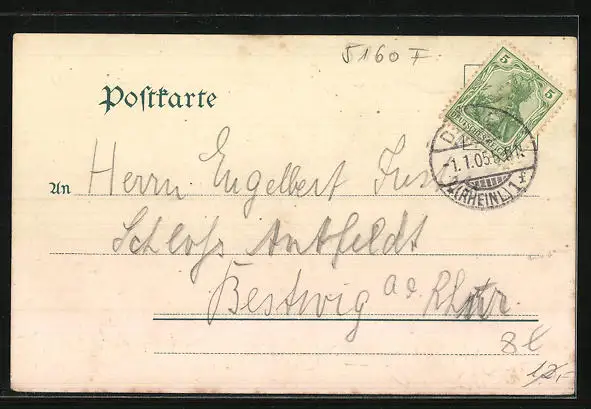 5160 F
Postkarte
5 5
DEUTSCHES REICH
-1.1.05.
(RHEINL.) 1f
An Herrn Engelbert
Schloss Antfeldt
Bestwig a. d. Ruhr.
8€
12,-